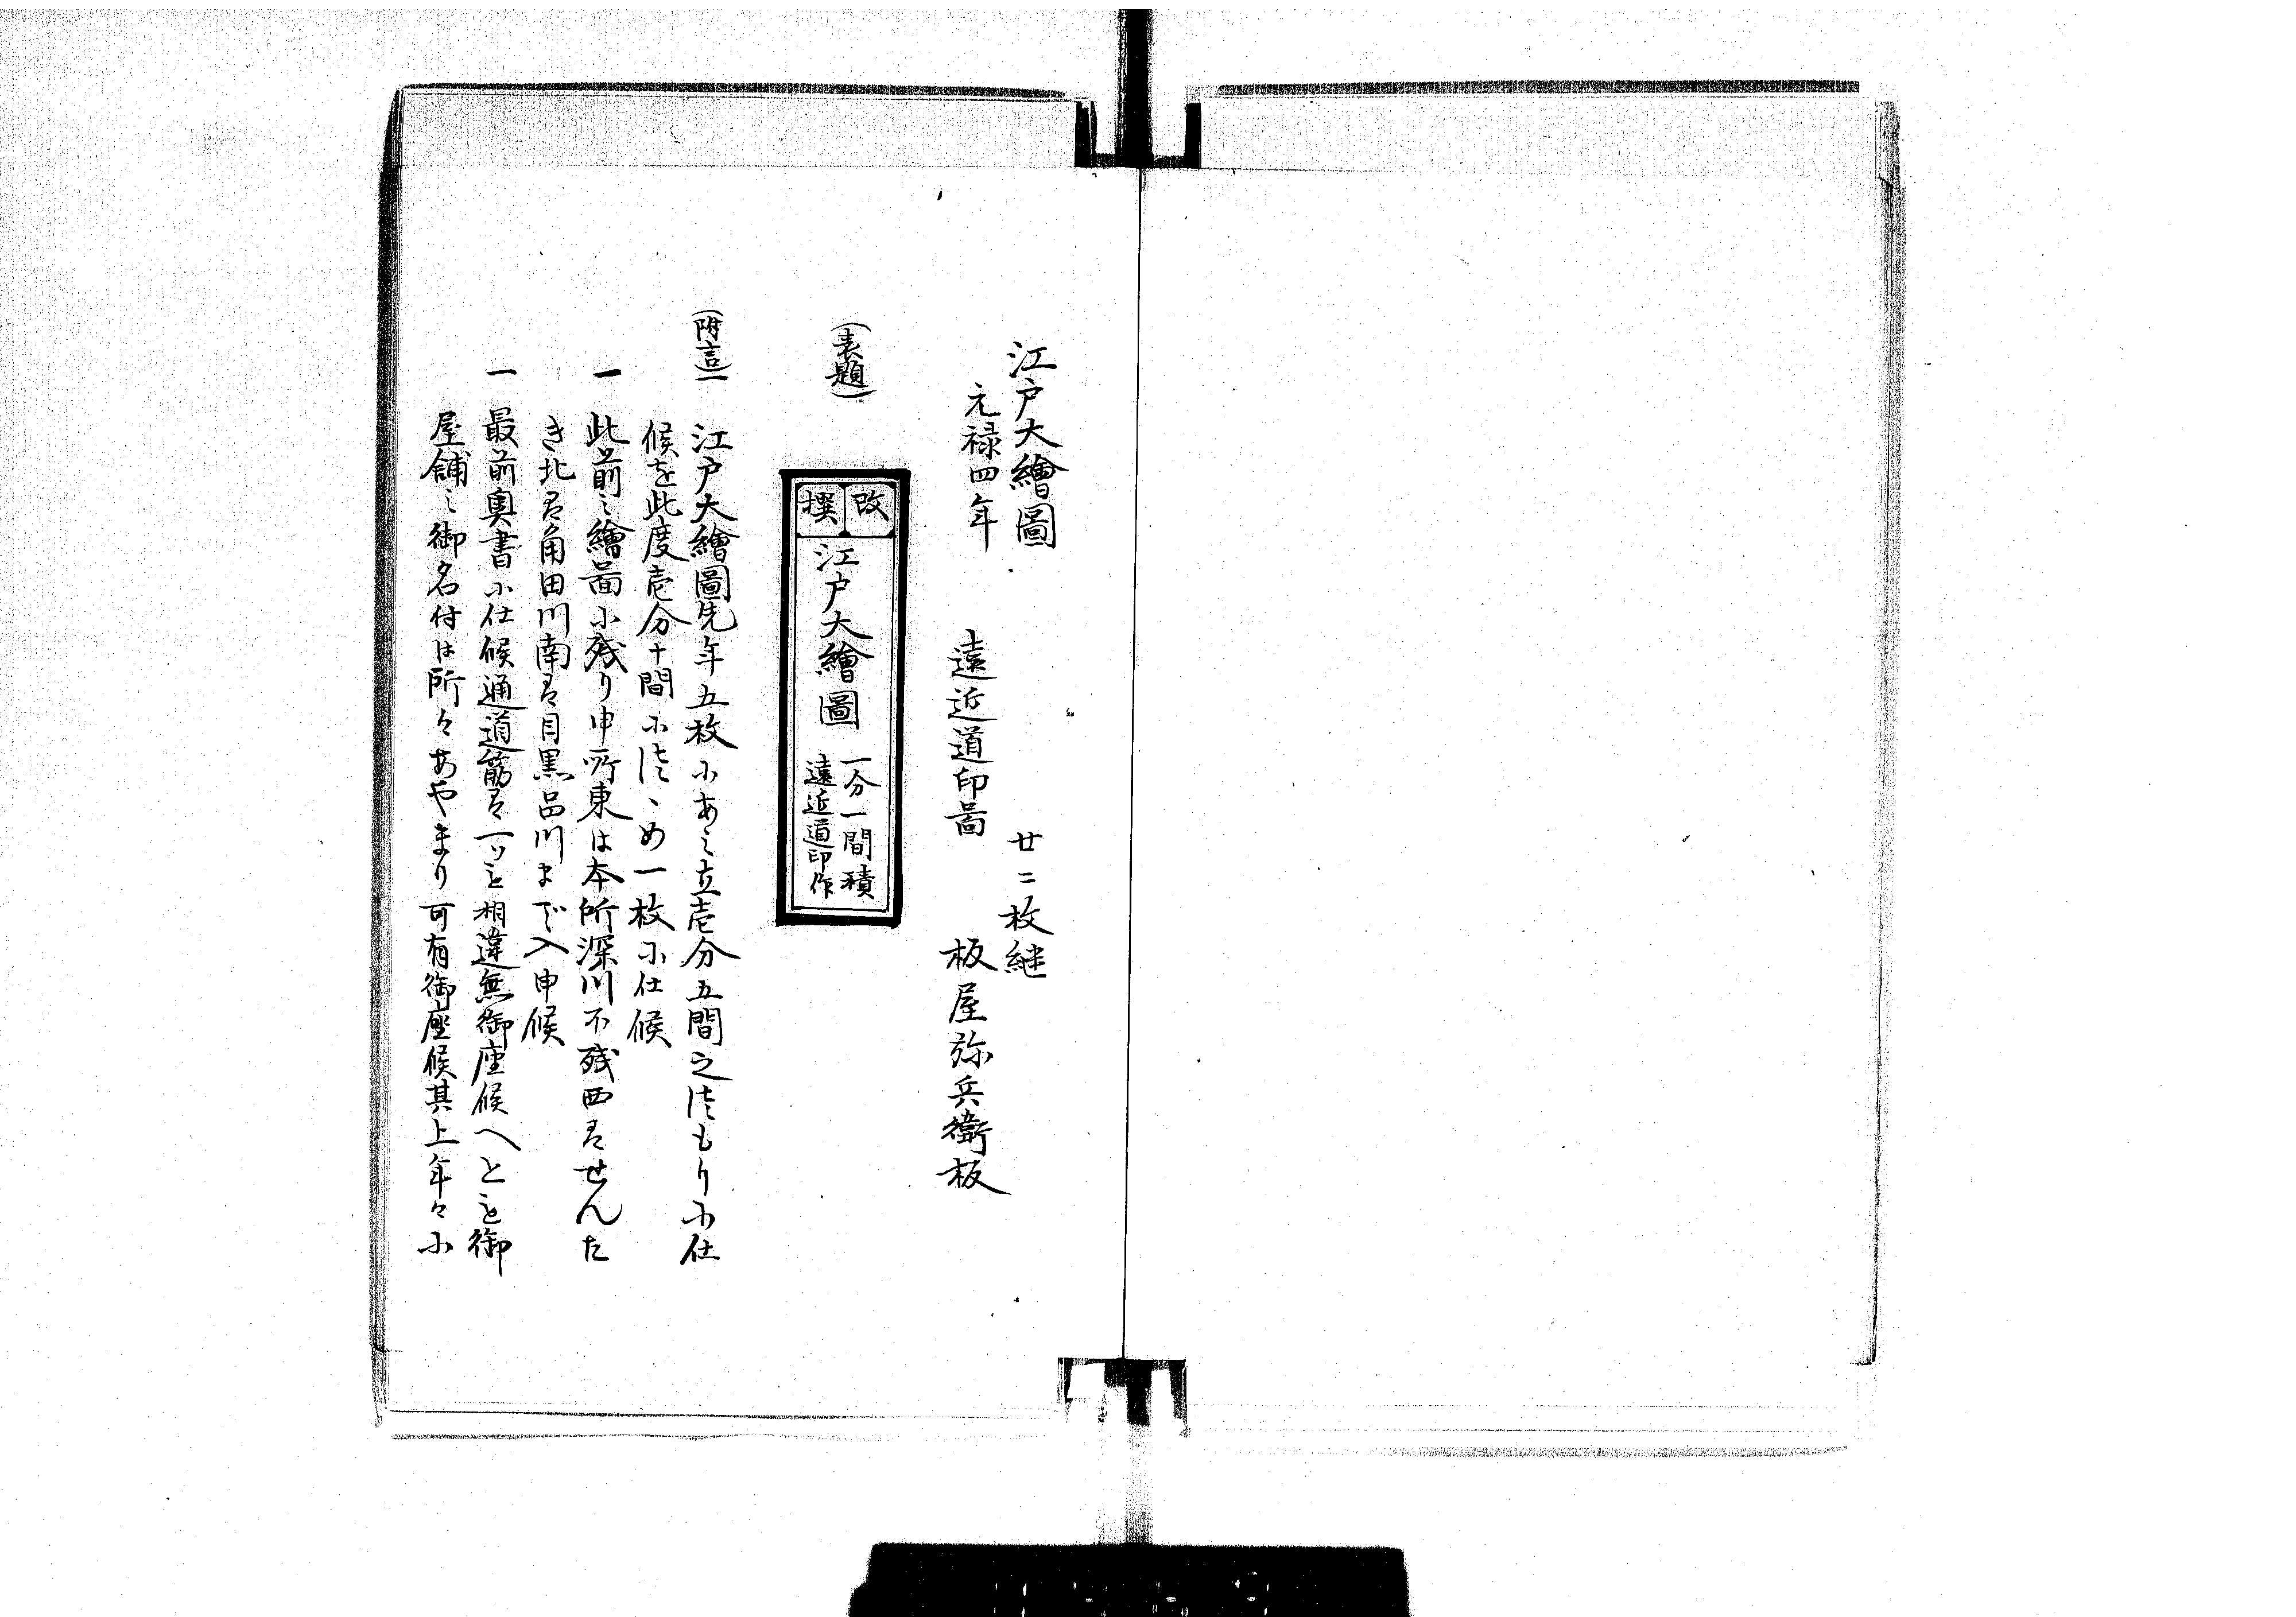 江戸大繪圖　廿二枚継
元禄四年　遠近道印啚　板屋弥兵衛板
(表題)
改撰
江戸大繪圖
一分一間積
遠近道印作
(附言)一　江戸大繪圖先年五枚にあミ立壱分五間之つもりに仕
候を此度壱分十間につゞめ一枚に仕候
一　此前之繪啚に残り申所東は本所深川不残西はせんた
き北は角田川南は目黒品川まで入申候
一　最前奥書に仕候通道筋は一ツも相違無御座候へとも御
屋舗之御名付は所々あやまり可有御座候其上年々に